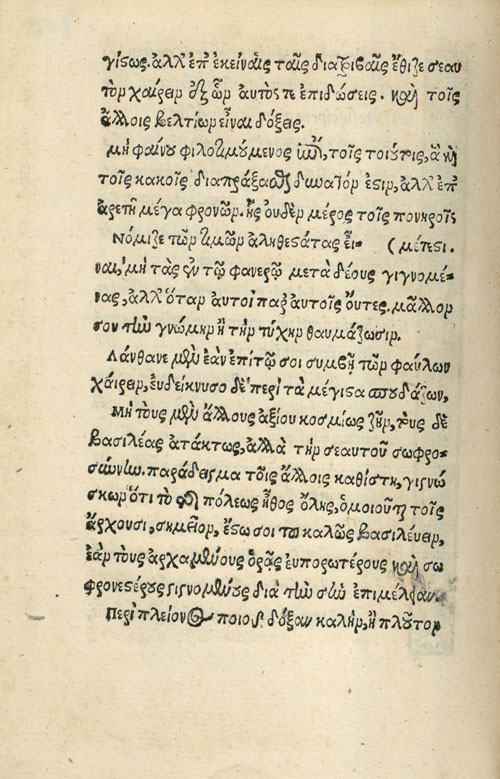 γίστως. ἀλλ' ἐπ' ἐκείναις ταῖς διατριβαῖς ἔθιζε σεαυ
τὸν χαίρειν ἐξ ὧν αὐτός τε ἐπιδώσεις. καὶ τοῖς
ἄλλοις βελτίων εἶναι δόξεις.
Μὴ φαίνου φιλοτιμούμενος ἐπὶ τοῖς τοιούτοις, ἃ καὶ
τοῖς κακοῖς διαπράξασθαι δυνατόν ἐστιν, ἀλλ' ἐπ'
ἀρετῇ μέγα φρονῶν. ἧς οὐδὲν μέρος τοῖς πονηροῖς
Νόμιζε τῶν τιμῶν ἀληθεστάτας εἶ- (μέτεστι.
ναι, μὴ τὰς ἐν τῷ φανερῷ μετὰ δέους γιγνομέ-
νας, ἀλλ' ὅταν αὐτοὶ παρ' αὐτοῖς ὄντες. μᾶλλον
σου τὴν γνώμην ἢ τὴν τύχην θαυμάζωσιν.
Λάνθανε μὲν ἐὰν ἐπὶ τῷ σοι συμβῇ τῶν φαύλων
χαίρειν, ἐνδείκνυσο δὲ περὶ τὰ μέγιστα σπουδάζων,
Μὴ τοὺς μὲν ἄλλους ἀξίου κοσμίως ζῆν, τοὺς δὲ
βασιλέας ἀτάκτως, ἀλλὰ τὴν σεαυτοῦ σωφρο-
σύνην. παράδειγμα τοῖς ἄλλοις καθίστη, γιγνώ
σκων ὅτι τὸ τῆς πόλεως ἦθος ὅλης, ὁμοιοῦται τοῖς
ἄρχουσι, σημεῖον, ἔστω σοι τοῦ καλῶς βασιλεύειν,
ἐὰν τοὺς ἀρχομένους ὁρᾷς εὐπορωτέρους καὶ σω
φρονεστέρους γιγνομένους διὰ τὴν σὴν ἐπιμέλειαν.
Περὶ πλείονος ποιοῦ δόξαν καλὴν, ἢ πλοῦτον